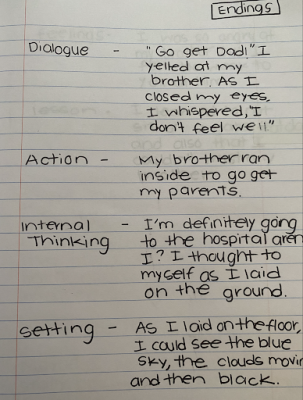 Endings
Dialogue - "Go get Dad!" I
yelled at my
brother. As I
closed my eyes,
I whispered, "I
don't feel well"
Action - My brother ran
inside to go get
my parents.
Internal - I'm definitely going
Thinking to the hospital aren
I? I thought to
myself as I laid
on the ground.
Setting - As I laid on the floor,
I could see the blue
sky, the clouds movin
and then black.